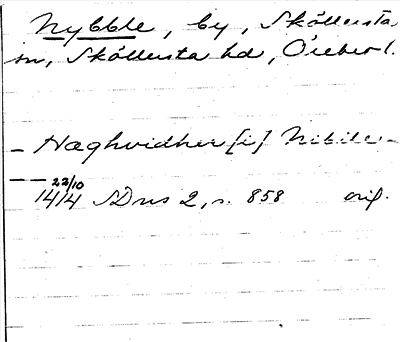 Nybble, by, Sköllersta
sn, Sköllersta hd, Örebro l.
– Hæghvidher [i] Nibile –
– – 22/10
1414 SDns 2, s. 858 orig.